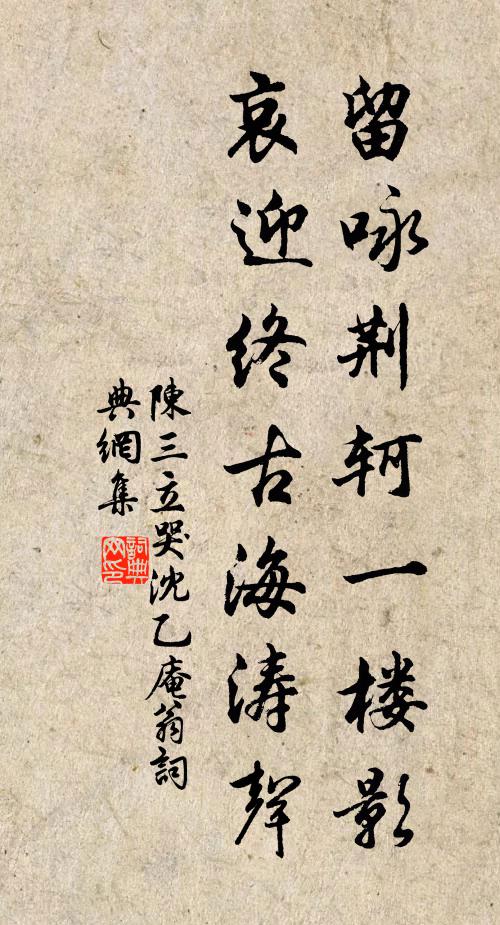 留咏荆轲一楼影
哀迎终古海涛聲
陳三立哭沈乙庵翁詞
典網集
詞典
网印